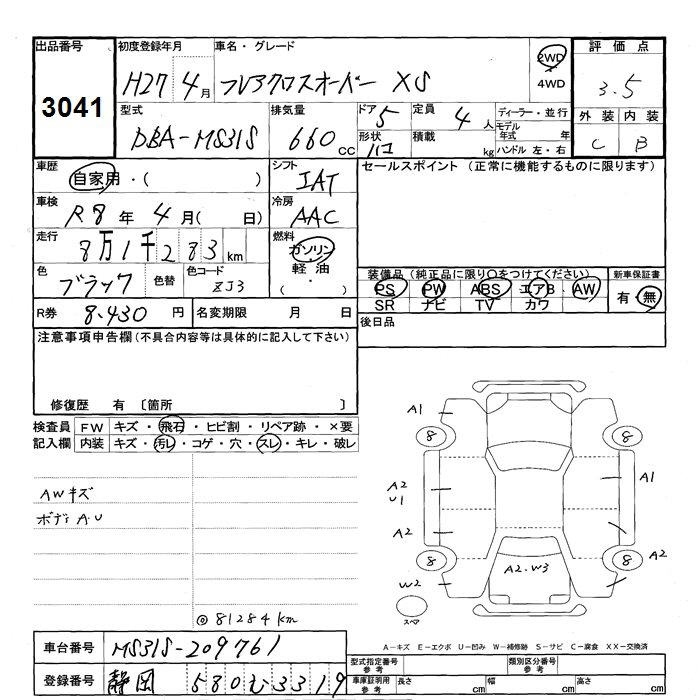 出品番号 初度登録年月 車名・グレード 評価点
3041 H27 4月 フレアクロスオーバー XS 2WD 4WD 3.5
型式 排気量 ドア 5 定員 4人 ディーラー・並行 外装 内装
DBA-MS31S 660cc 形状 ハコ 積載 kg モデル年式 年 ハンドル 左・右 C B
車歴 自家用・( ) シフト IAT セールスポイント (正常に機能するものに限ります)
車検 R8年 4月( 日) 冷房 AAC
走行 8万1千283km 燃料 ガソリン 軽油 ( ・ )
色 ブラック 色替 色コード ZJ3
装備品 (純正品に限り○をつけてください) 新車保証書
PS PW ABS エアB AW 有・無
SR ナビ TV カワ
R券 8,430円 名変期限 月 日 後日品
注意事項申告欄 (不具合内容等は具体的に記入して下さい)
修復歴 有 〔箇所 〕
検査員 FW キズ・飛石・ヒビ割・リペア跡・×要
記入欄 内装 キズ・汚レ・コゲ・穴・スレ・キレ・破レ
AWキズ
ボディA.U
◎81284km
A1
8 8
A2 U1 A1
A2
8 8 A2
W2 A2.W3
スペア
A-キズ E-エクボ U-凹み W-補修跡 S-サビ C-腐食 XX-交換済
車台番号 MS31S-209761 型式指定番号 参考 類別区分番号 参考
登録番号 静岡 580 む 3319 車庫証明用 参考 長さ cm 幅 cm 高さ cm